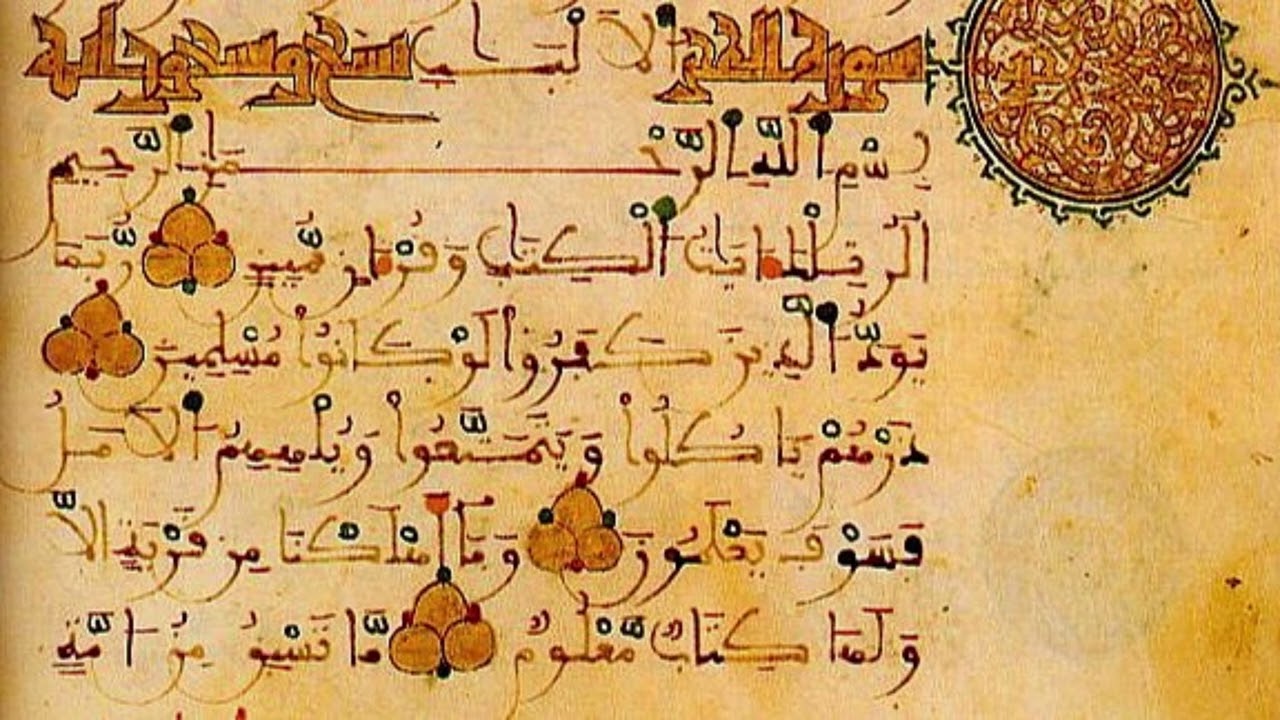 سورة الحجر الالبٰب تسع وتسعون اية
بِسْمِ اللَّهِ الرَّحْمَٰنِ الرَّحِيمِ
الٓر تِلْكَ ءَايَٰتُ الْكِتَٰبِ وَقُرْءَانٍ مُّبِينٍ رُّبَمَا
يَوَدُّ الَّذِينَ كَفَرُواْ لَوْ كَانُواْ مُسْلِمِينَ
ذَرْهُمْ يَاكُلُواْ وَيَتَمَتَّعُواْ وَيُلْهِهِمُ الْاَمَلُ
فَسَوْفَ يَعْلَمُونَ وَمَآ أَهْلَكْنَا مِن قَرْيَةٍ اِلَّا
وَلَهَا كِتَابٌ مَّعْلُومٌ مَّا تَسْبِقُ مِنُ امَّةٍ